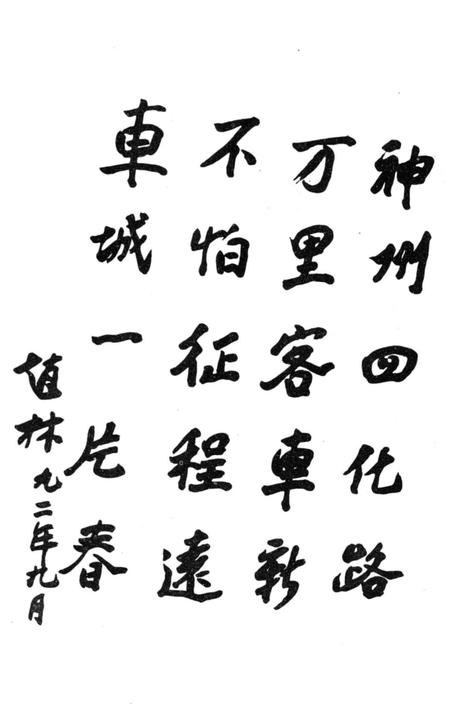 神州四化路
万里客車新
不怕征程遠
車城一片春
植林九二年九月